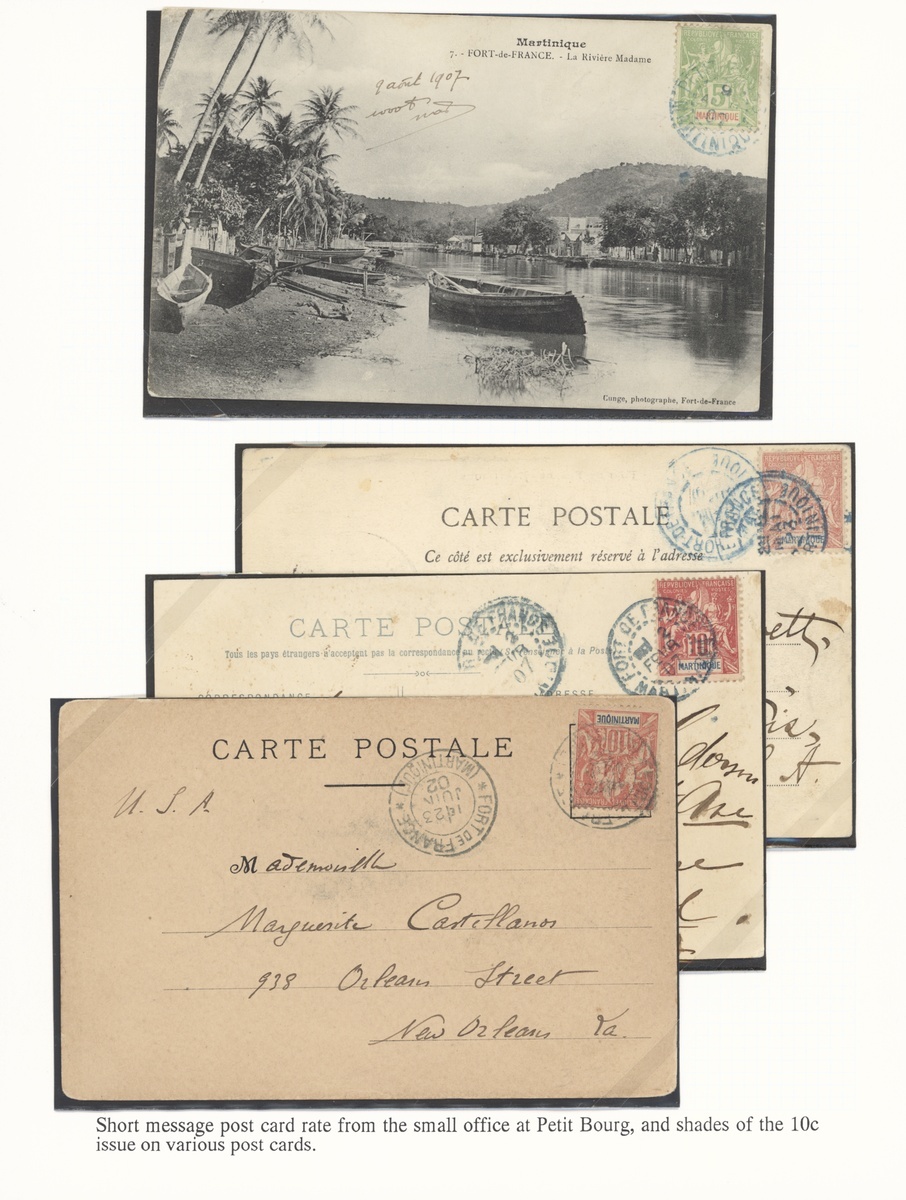 Martinique
7. - FORT-de-FRANCE. - La Rivière Madame
9 août 1907
REPUBLIQUE FRANCAISE
5
MARTINIQUE
Cunge, photographe, Fort-de-France
CARTE POSTALE
Ce côté est exclusivement réservé à l'adresse
REPUBLIQUE FRANCAISE
MARTINIQUE
CARTE POSTALE
Tous les pays étrangers n'acceptent pas la correspondance au recto
CORRESPONDANCE
07
FORT DE FRANCE
REPUBLIQUE FRANCAISE
COLONIES POSTES
10
MARTINIQUE
A.
CARTE POSTALE
MARTINIQUE
10
FORT DE FRANCE
(MARTINIQUE)
23
JUIN
02
U. S. A
Mademoiselle
Marguerite Castellanos
938 Orleans Street
New Orleans La.
Short message post card rate from the small office at Petit Bourg, and shades of the 10c
issue on various post cards.